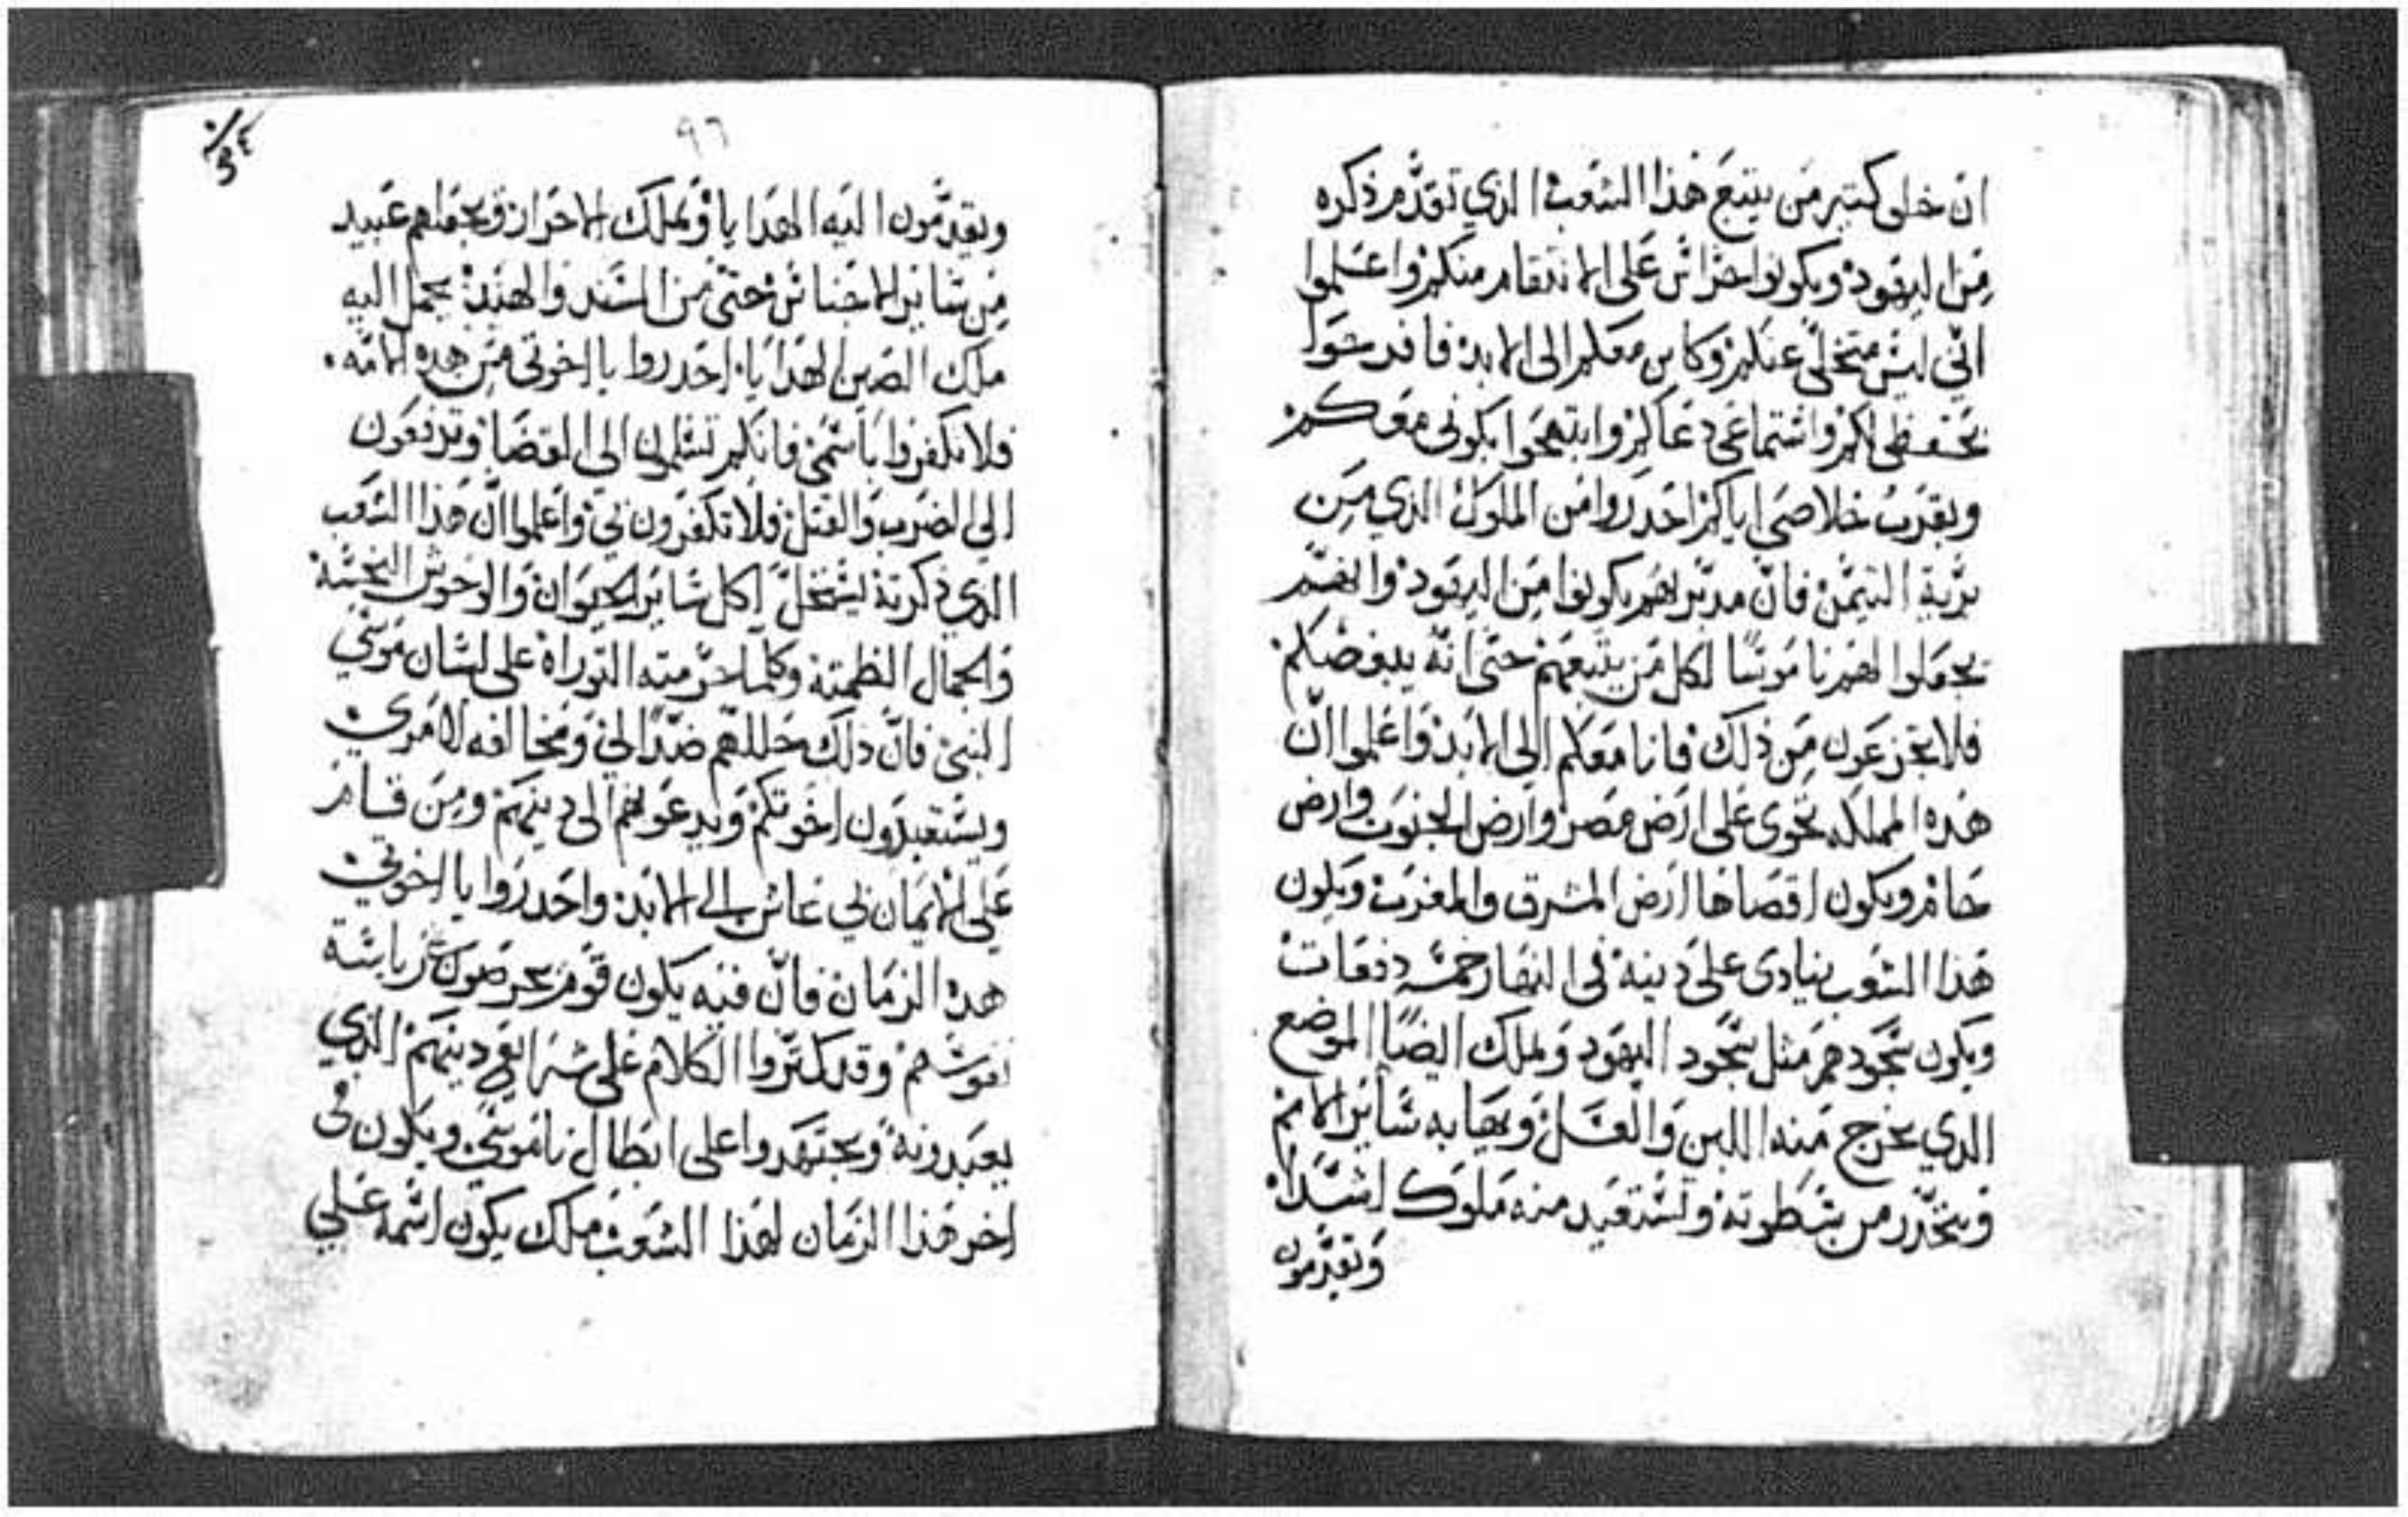 ان خلق كتير من يتبع هذا الشعب الذي تقدم ذكره
من اليهود ويكونوا حراس على الانتقام منكم واعلموا
اني ليس متخلي عنكم وكاين معكم الى الابد فافرحوا
بحفظي لكم واستماعي دعاكم وابتهجوا بكوني معكم
وبقرب خلاصي اياكم احدروا من الملوك الذي من
برية التيمن فان مدبراهم يكونوا من اليهود وانهم
يجعلوا لهم ناموسا لكل من يتبعهم حتى انه يبغضكم
فلا تجزعون من ذلك فانا معكم الى الابد واعلموا ان
هذه المملكه تحوي على ارض مصر وارض الجنوب وارض
حام ويكون اقصاها ارض المشرق والمغرب ويكون
هذا الشعب ينادى على دينه في النهار خمسه دفعات
ويكون سجودهم مثل سجود اليهود ويملك ايضا الموضع
الدي يخرج منه اللبن والعسل ويهابه ساير الامم
ويتحذر من سطوته ولستعيد منه ملوك اشدا
وتقدمون
٩٦
ويقدمون اليه الهدايا ويملك الاحرار ويجعلهم عبيد
من ساير الاجناس حتى من السند والهند يحمل اليه
ملك الصين الهدايا احدروا يا اخوتي من هده الامه
فلا تكفروا باسمي فانكم تسلمون الي القضا وتدفعون
الي الضرب والقتل فلا تكفرون بي واعلموا ان هذا الشعب
الدي ذكرته يستحل اكل ساير الحيوان والوحوش النجسه
والجمال الطمته وكلما حرمته التوراة على لسان موسي
النبي فان ذلك حللهم ضدا لي ومخالفه لامري
ويستعبدون اخوتكم ويدعونهم الى دينهم ومن قام
علي الايمان بي عاش الى الابد واحدروا يا اخوتي
هدا الزمان فان فيه يكون قوم يحرصون رياسة
نفوسهم وقد كتروا الكلام على شرايع دينهم الذي
يعبدونه ويجتهدوا على ابطال ناموسي ويكون في
اخر هذا الزمان لهذا الشعب ملك يكون اسمه علي